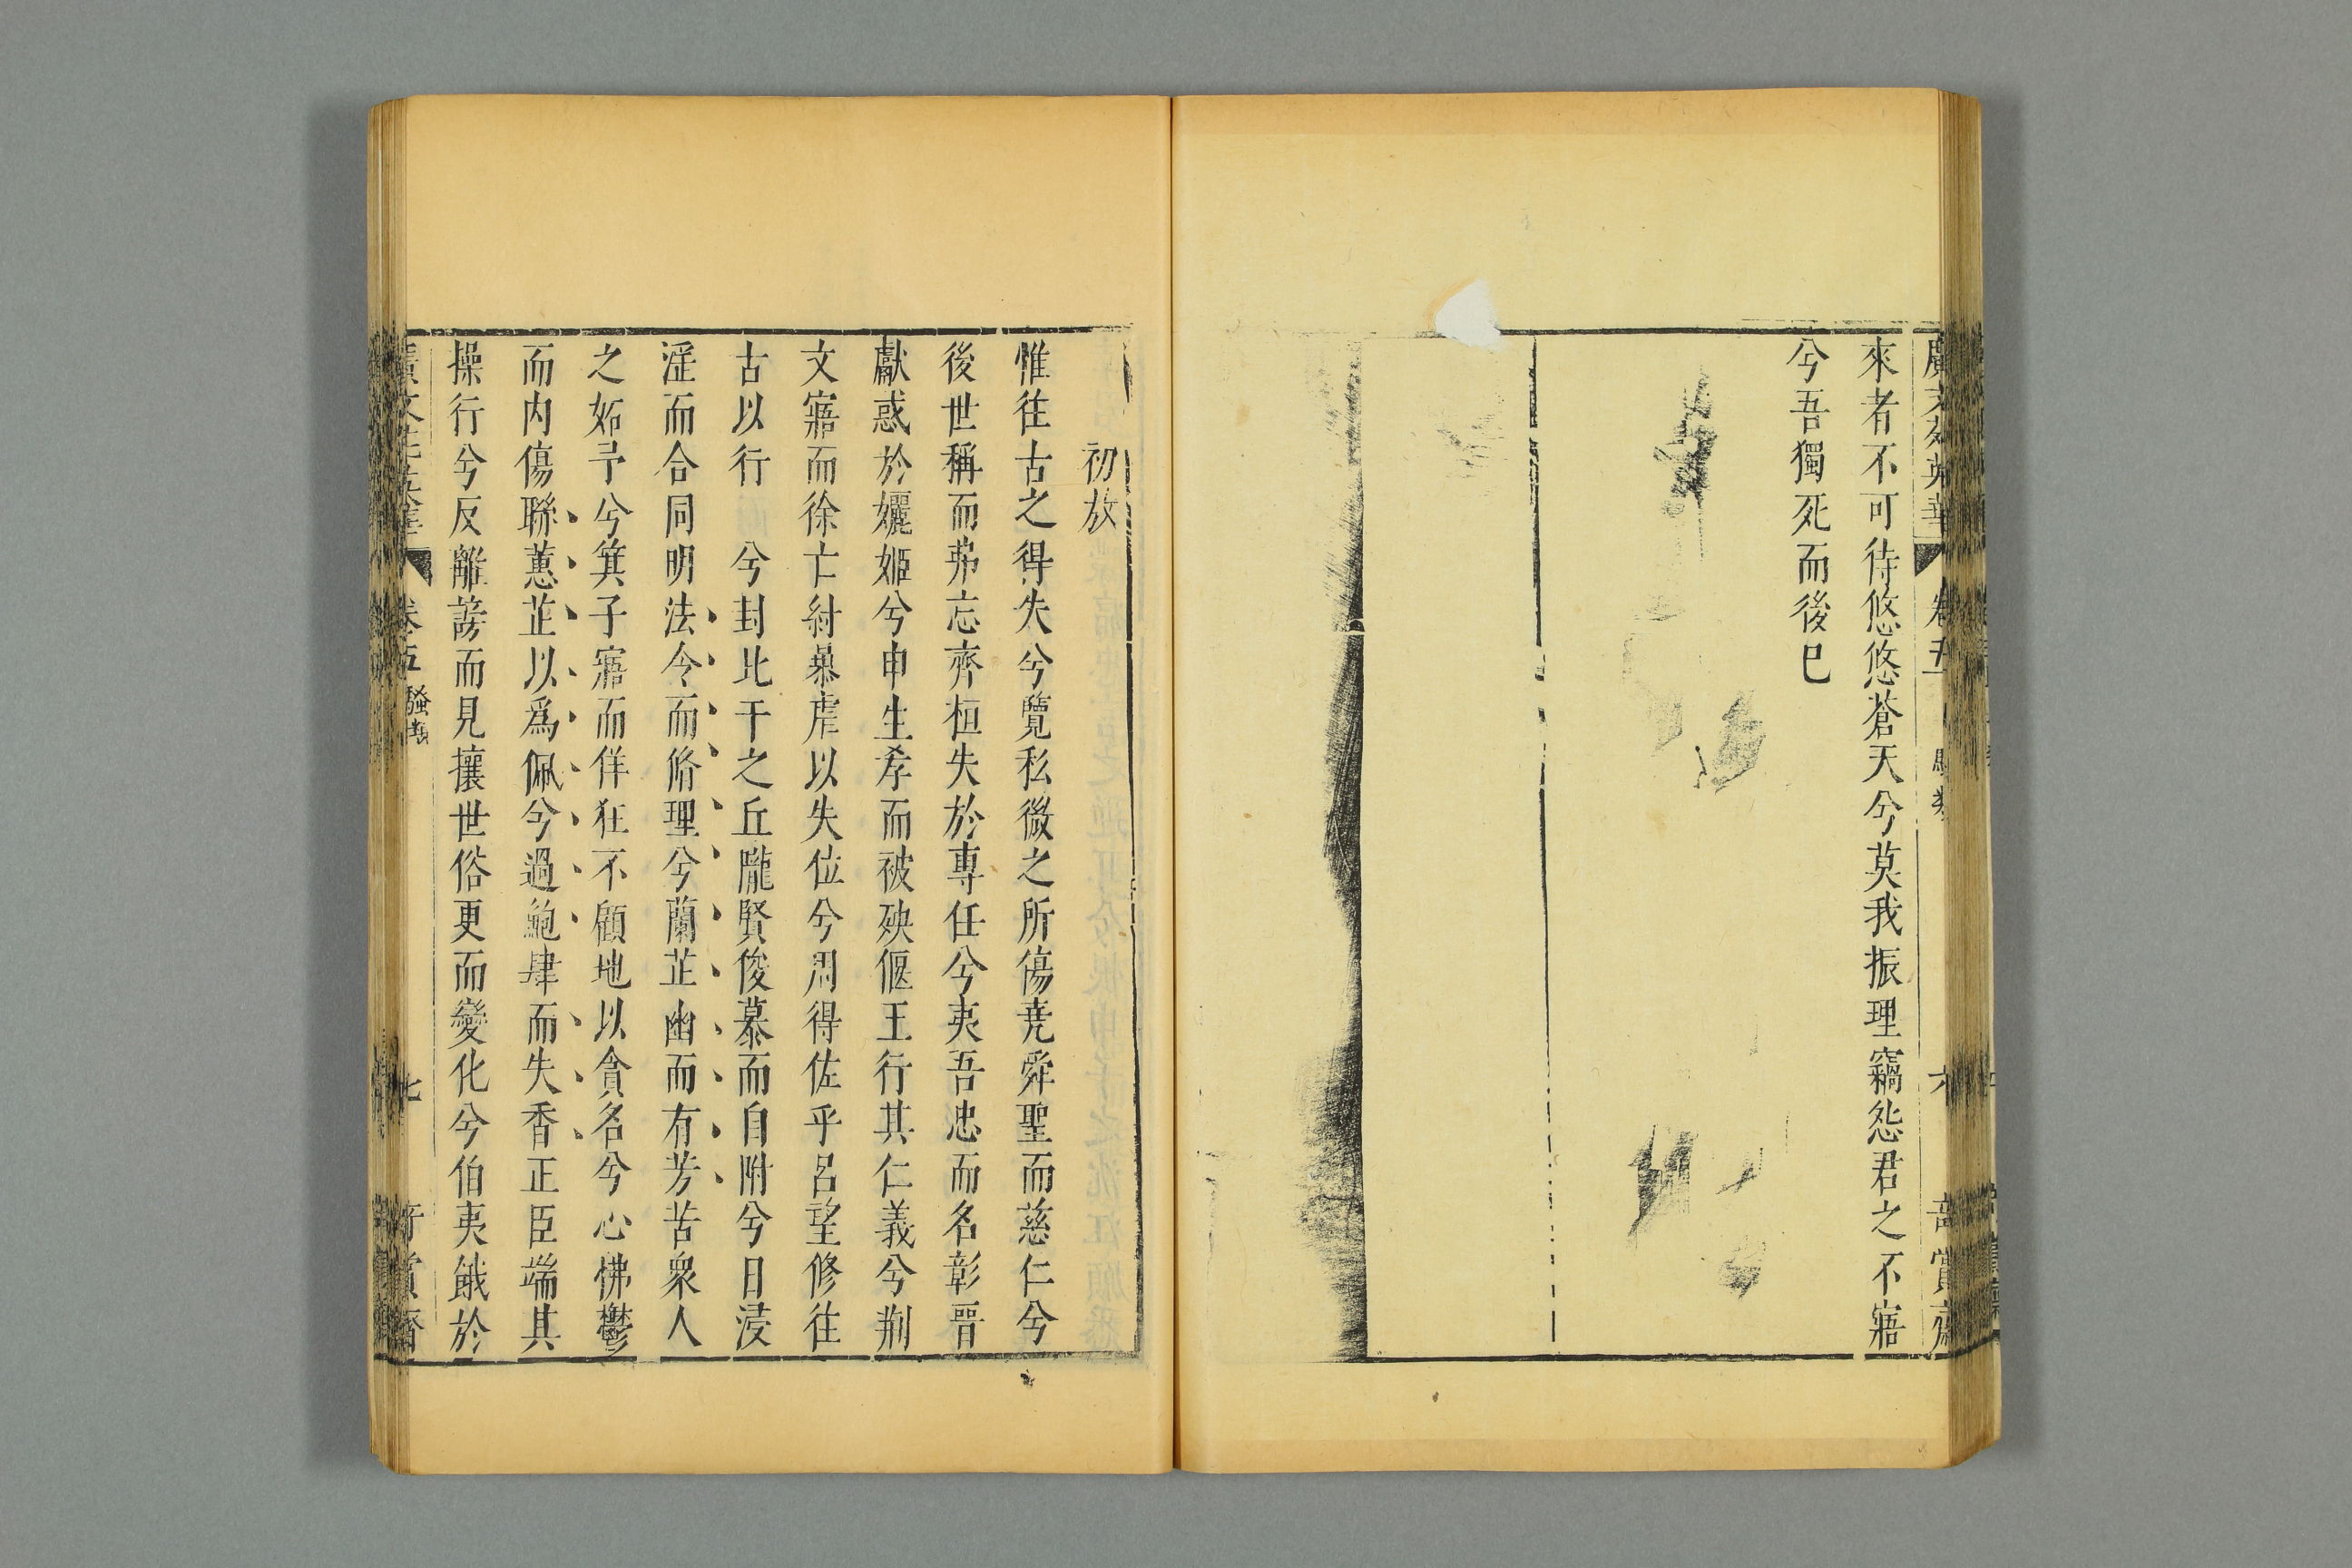 來者不可待悠悠蒼天兮莫我振理竊怨君之不寤
兮吾獨死而後已
初放
惟往古之得失兮覽私微之所傷堯舜聖而慈仁兮
後世稱而弗忘齊桓失於專任兮夷吾忠而名彰晉
獻惑於孋姬兮申生孝而被殃偃王行其仁義兮荆
文寤而徐亡紂暴虐以失位兮周得佐乎呂望修往
古以行 兮封比干之丘隴賢俊慕而自附兮日浸
淫而合同明法令而脩理兮蘭芷幽而有芳苦衆人
之妬予兮箕子寤而佯狂不顧地以貪名兮心怫鬱
而内傷聯蕙芷以爲佩兮過鮑肆而失香正臣端其
操行兮反離謗而見攘世俗更而變化兮伯夷餓於
卷五 騷類